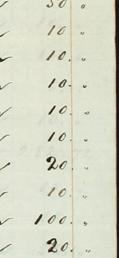 50 "
✓ 10 "
✓ 10. "
✓ 10 "
✓ 10. "
✓ 10. "
✓ 20. "
✓ 10. "
✓ 100. "
✓ 20. "